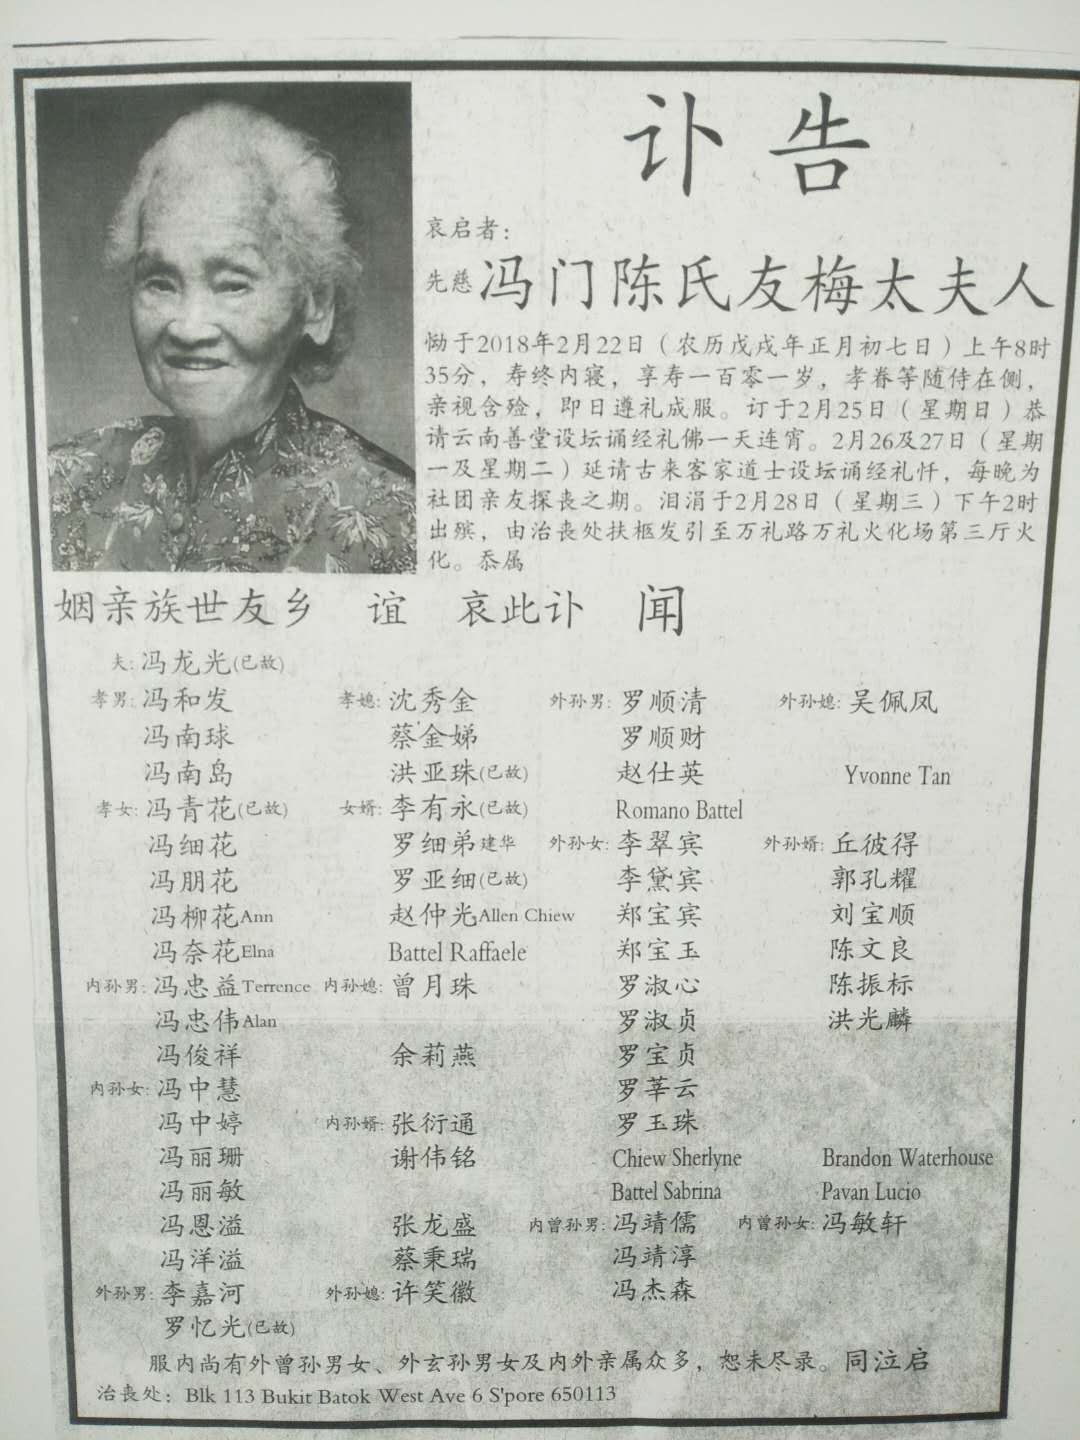 讣告
哀启者：
先慈 冯门陈氏友梅太夫人
恸于2018年2月22日（农历戊戌年正月初七日）上午8时
35分，寿终内寝，享寿一百零一岁，孝眷等随侍在侧，
亲视含殓，即日遵礼成服。订于2月25日（星期日）恭
请云南善堂设坛诵经礼佛一天连宵。2月26及27日（星期
一及星期二）延请古来客家道士设坛诵经礼忏，每晚为
社团亲友探丧之期。泪涓于2月28日（星期三）下午2时
出殡，由治丧处扶柩发引至万礼路万礼火化场第三厅火
化。忝属
姻亲族世友乡 谊 哀此讣 闻
夫: 冯龙光(已故)
孝男: 冯和发 孝媳: 沈秀金 外孙男: 罗顺清 外孙媳: 吴佩凤
冯南球 蔡金娣 罗顺财
冯南岛 洪亚珠(已故) 赵仕英 Yvonne Tan
孝女: 冯青花(已故) 女婿: 李有永(已故) Romano Battel
冯细花 罗细弟建华 外孙女: 李翠宾 外孙婿: 丘彼得
冯朋花 罗亚细(已故) 李黛宾 郭孔耀
冯柳花Ann 赵仲光Allen Chiew 郑宝宾 刘宝顺
冯奈花Elna Battel Raffaele 郑宝玉 陈文良
内孙男: 冯忠益Terrence 内孙媳: 曾月珠 罗淑心 陈振标
冯忠伟Alan 罗淑贞 洪光麟
冯俊祥 余莉燕 罗宝贞
内孙女: 冯中慧 罗莘云
冯中婷 内孙婿: 张衍通 罗玉珠
冯丽珊 谢伟铭 Chiew Sherlyne Brandon Waterhouse
冯丽敏 Battel Sabrina Pavan Lucio
冯恩溢 张龙盛 内曾孙男: 冯靖儒 内曾孙女: 冯敏轩
冯洋溢 蔡秉瑞 冯靖淳
外孙男: 李嘉河 外孙媳: 许笑徽 冯杰森
罗忆光(已故)
服内尚有外曾孙男女、外玄孙男女及内外亲属众多，恕未尽录。同泣启
治丧处：Blk 113 Bukit Batok West Ave 6 S'pore 650113